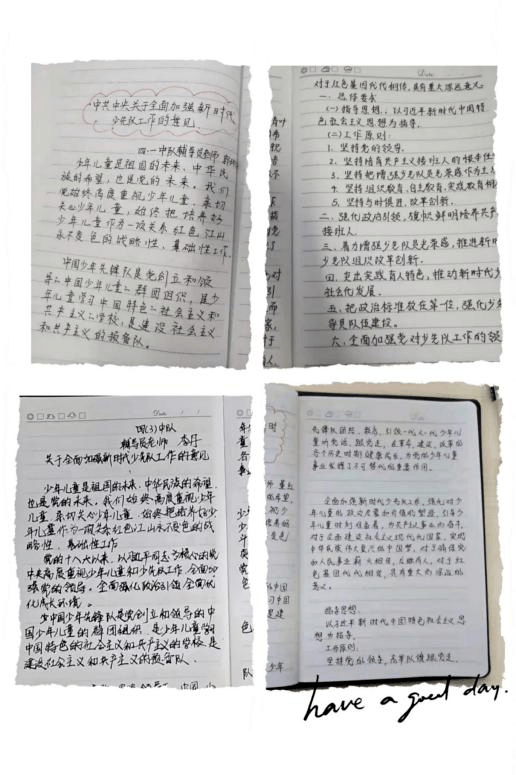 中共中央关于全面加强新时代
少先队工作的意见
四.一中队辅导员老师
少年儿童是祖国的未来，中华民
族的希望，也是党的未来。我们
党始终高度重视少年儿童，亲切
关心少年儿童，始终把培养好
少年儿童作为一项关系红色江山
永不变色的战略性、基础性工作。
中国少年先锋队是党创立和领
导的中国少年儿童的群团组织，是少
年儿童学习中国特色的社会主义和
共产主义的学校，是建设社会主义
和共产主义的预备队。
Date
对于红色基因代代相传，具有重大深远意义。
一、总体要求
(一)指导思想：以习近平新时代中国特
色社会主义思想为指导。
(二)工作原则：
1. 坚持党的领导。
2. 坚持培养共产主义接班人的根本任
3. 坚持把增强少先队员光荣感作为
4. 坚持组织教育、自主教育、实践教育相
5. 坚持与时俱进、改革创新。
二、强化政治引领，旗帜鲜明培养共产
接班人。
三、着力增强少先队员光荣感，推进新时
少先队组织改革创新。
四、突出实践育人特色，推动新时代少
社会化发展。
五、把政治标准放在第一位，强化少先
导员队伍建设。
六、全面加强党对少先队工作的领
Date
四(3)中队
辅导员老师 李丹
关于全面加强新时代少先队工作的意见
少年儿童是祖国的未来、中华民族的希望，
也是党的未来。我们始终高度重视少年
儿童、亲切关心少年儿童，始终把培养好少
年儿童作为一项关系红色江山永不变色的战
略性、基础性工作
党的十八大以来，以习近平同志为核心的党
中央高度重视少年儿童和少先队工作，全面加
强党的领导。全面强化政治引领 全面优
化成长环境。
中国少年先锋队是党创立和领导的中
国少年儿童的群团组织，是少年儿童学习
中国特色的社会主义和共产主义的学校，是
建设社会主义和共产主义的预备队。
先锋队团结、教育、引领一代又一代少年儿
童听党话、跟党走，在革命、建设、改革的
各个历史时期健康成长，为党的少年儿童
事业发挥了不可替代的重要作用。
全面加强新时代少先队工作，强化对少
年儿童的政治启蒙和价值观塑造，引导少
年儿童时刻准备着，为共产主义事业而奋斗，
对于全面建设社会主义现代化国家、实现
中华民族伟大复兴的中国梦，对于确保党
和人民事业薪火相传、后继有人，对于红
色基因代代相传，具有重大而深远的
意义。
指导思想：
以习近平新时代中国特色社会主义思
想为指导。
工作原则：
坚持党的领导、高举队旗跟党走。
have a good day.